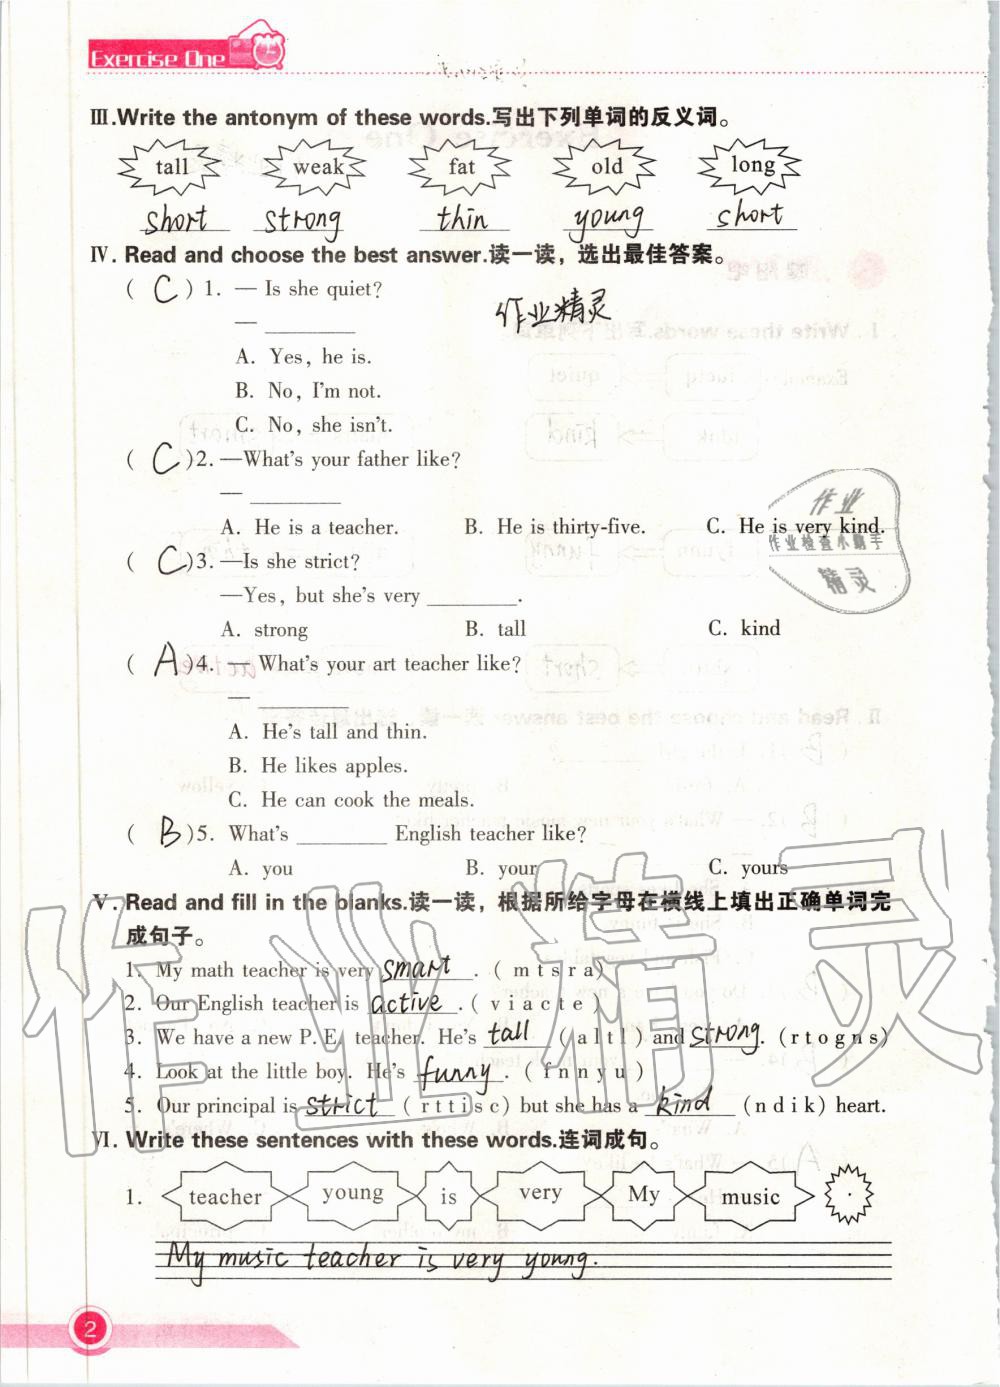 Exercise One
Ⅲ.Write the antonym of these words.写出下列单词的反义词。
tall weak fat old long
short strong thin young short
Ⅳ. Read and choose the best answer.读一读，选出最佳答案。
( C ) 1. — Is she quiet?
作业精灵
— ________
A. Yes, he is.
B. No, I'm not.
C. No, she isn't.
( C )2. —What's your father like?
— ________
A. He is a teacher. B. He is thirty-five. C. He is very kind.
作业
作业检查小助手
精灵
( C )3. —Is she strict?
—Yes, but she's very ________.
A. strong B. tall C. kind
( A )4. — What's your art teacher like?
— ________
A. He's tall and thin.
B. He likes apples.
C. He can cook the meals.
( B )5. What's ________ English teacher like?
A. you B. your C. yours
Ⅴ. Read and fill in the blanks.读一读，根据所给字母在横线上填出正确单词完
成句子。
1. My math teacher is very smart. ( m t s r a)
2. Our English teacher is active. ( v i a c t e )
3. We have a new P. E. teacher. He's tall ( a l t l ) and strong. ( r t o g n s)
4. Look at the little boy. He's funny. ( f n n y u )
5. Our principal is strict ( r t t i s c) but she has a kind (n d i k) heart.
Ⅵ. Write these sentences with these words.连词成句。
1. teacher young is very My music .
My music teacher is very young.
2
作业精灵